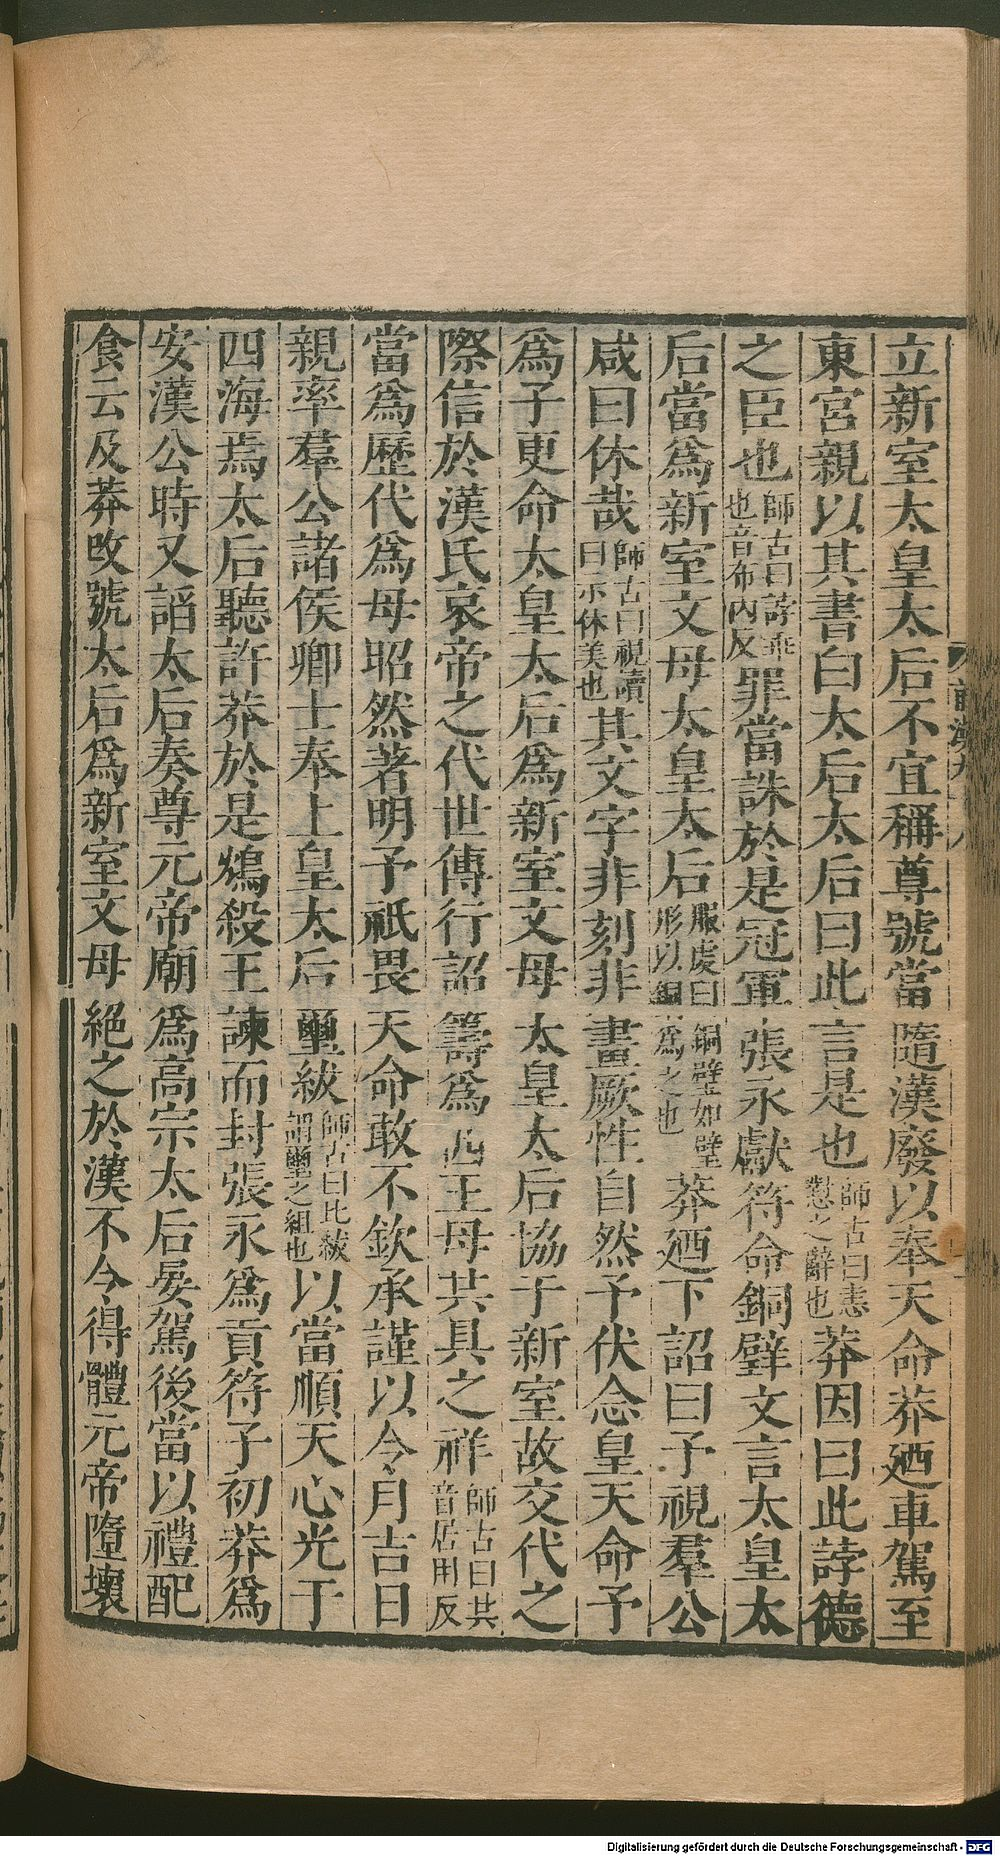 立新室太皇太后不宜稱尊號當隨漢廢以奉天命莽迺車駕至
東宮親以其書白太后太后曰此言是也師古曰恚懟之辭也莽因曰此誖德
之臣也師古曰誖乖也音布內反罪當誅於是冠軍張永獻符命銅璧文言太皇太
后當爲新室文母太皇太后服虔曰形以銅銅璧如璧爲之也莽迺下詔曰予視羣公
咸曰休哉師古曰視讀曰示休美也其文字非刻非畫厥性自然予伏念皇天命予
爲子更命太皇太后爲新室文母太皇太后協于新室故交代之
際信於漢氏哀帝之代世傳行詔籌爲西王母共具之祥師古曰共音居用反
當爲歷代爲母昭然著明予祇畏天命敢不欽承謹以今月吉日
親率羣公諸侯卿士奉上皇太后璽紱師古曰此紱謂璽之組也以當順天心光于
四海焉太后聽許莽於是鴆殺王諫而封張永爲貢符子初莽爲
安漢公時又諂太后奏尊元帝廟爲高宗太后晏駕後當以禮配
食云及莽改號太后爲新室文母絕之於漢不令得體元帝墮壞
前漢九十八
Digitalisierung gefördert durch die Deutsche Forschungsgemeinschaft - DFG